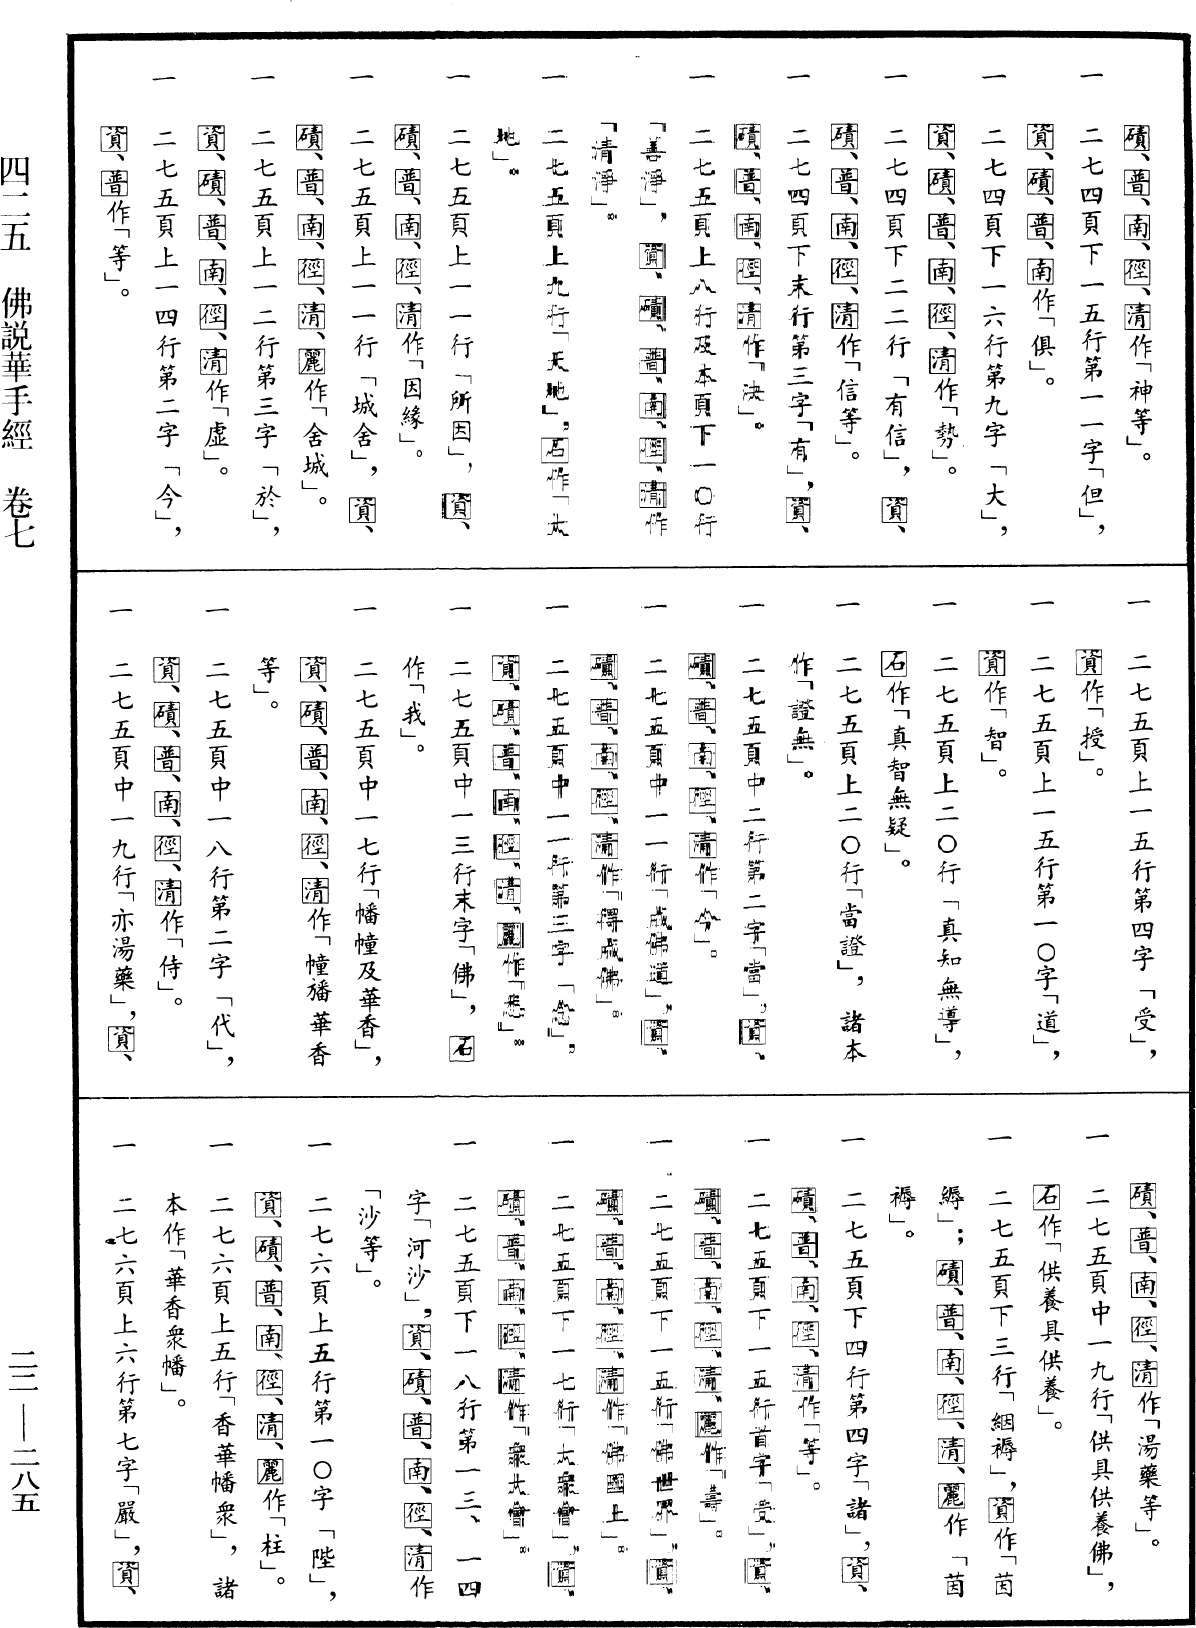 磧、普、南、徑、清作「神等」。
一　二七四頁下一五行第一一字「但」，
資、磧、普、南作「俱」。
一　二七四頁下一六行第九字「大」，
資、磧、普、南、徑、清作「勢」。
一　二七四頁下二二行「有信」，資、
磧、普、南、徑、清作「信等」。
一　二七四頁下末行第三字「有」，資、
磧、普、南、徑、清作「決」。
一　二七五頁上八行及本頁下一〇行
「善淨」，資、磧、普、南、徑、清作
「清淨」。
一　二七五頁上九行「天地」，石作「大
地」。
一　二七五頁上一一行「所因」，資、
磧、普、南、徑、清作「因緣」。
一　二七五頁上一一行「城舍」，資、
磧、普、南、徑、清、麗作「舍城」。
一　二七五頁上一二行第三字「於」，
資、磧、普、南、徑、清作「虛」。
一　二七五頁上一四行第二字「今」，
資、普作「等」。
一　二七五頁上一五行第四字「受」，
資作「授」。
一　二七五頁上一五行第一〇字「道」，
資作「智」。
一　二七五頁上二〇行「真知無導」，
石作「真智無疑」。
一　二七五頁上二〇行「當證」，諸本
作「證無」。
一　二七五頁中二行第二字「當」，資、
磧、普、南、徑、清作「今」。
一　二七五頁中一一行「成佛道」，資、
磧、普、南、徑、清作「得成佛」。
一　二七五頁中一一行第三字「念」，
資、磧、普、南、徑、清、麗作「悉」。
一　二七五頁中一三行末字「佛」，石
作「我」。
一　二七五頁中一七行「幡幢及華香」，
資、磧、普、南、徑、清作「幢旛華香
等」。
一　二七五頁中一八行第二字「代」，
資、磧、普、南、徑、清作「侍」。
一　二七五頁中一九行「亦湯藥」，資、
磧、普、南、徑、清作「湯藥等」。
一　二七五頁中一九行「供具供養佛」，
石作「供養具供養」。
一　二七五頁下三行「絪褥」，資作「茵
縟」；磧、普、南、徑、清、麗作「茵
褥」。
一　二七五頁下四行第四字「諸」，資、
磧、普、南、徑、清作「等」。
一　二七五頁下一五行首字「受」，資、
磧、普、南、徑、清、麗作「壽」。
一　二七五頁下一五行「佛世界」，資、
磧、普、南、徑、清作「佛國上」。
一　二七五頁下一七行「大衆會」，資、
磧、普、南、徑、清作「衆大會」。
一　二七五頁下一八行第一三、一四
字「河沙」，資、磧、普、南、徑、清作
「沙等」。
一　二七六頁上五行第一〇字「陛」，
資、磧、普、南、徑、清、麗作「柱」。
一　二七六頁上五行「香華幡衆」，諸
本作「華香衆幡」。
一　二七六頁上六行第七字「嚴」，資、
四二五　佛說華手經　卷七
二二——二八五